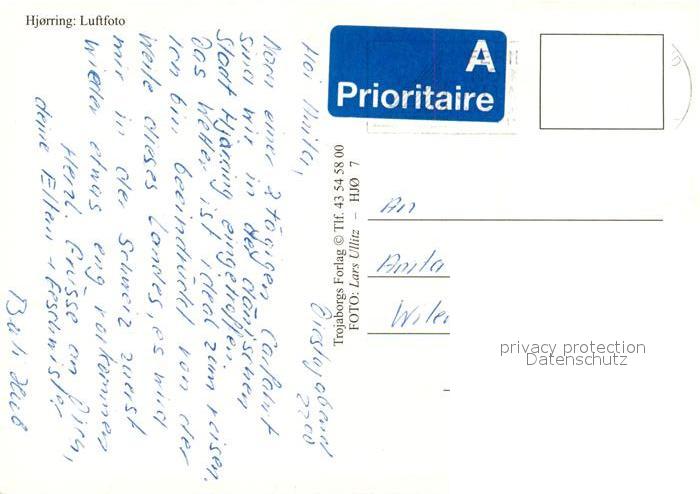 Hjørring: Luftfoto
A
Prioritaire
Trojaborgs Forlag © Tlf. 43 54 58 00
FOTO: Lars Ullitz – HJØ 7
Dienstag abend
2200
Hoi
Nach einer 2 tägigen Carfahrt
sind wir in der dänischen
Stadt Hjørring eingetroffen.
Das Wetter ist ideal zum reisen.
Ich bin beeindruckt von der
Weite dieses Landes, es wird
mir in der Schweiz zuerst
wieder etwas eng vorkommen
Herzl. Grüsse an Dich,
deine Eltern + Geschwister
An
Anita
privacy protection
Datenschutz